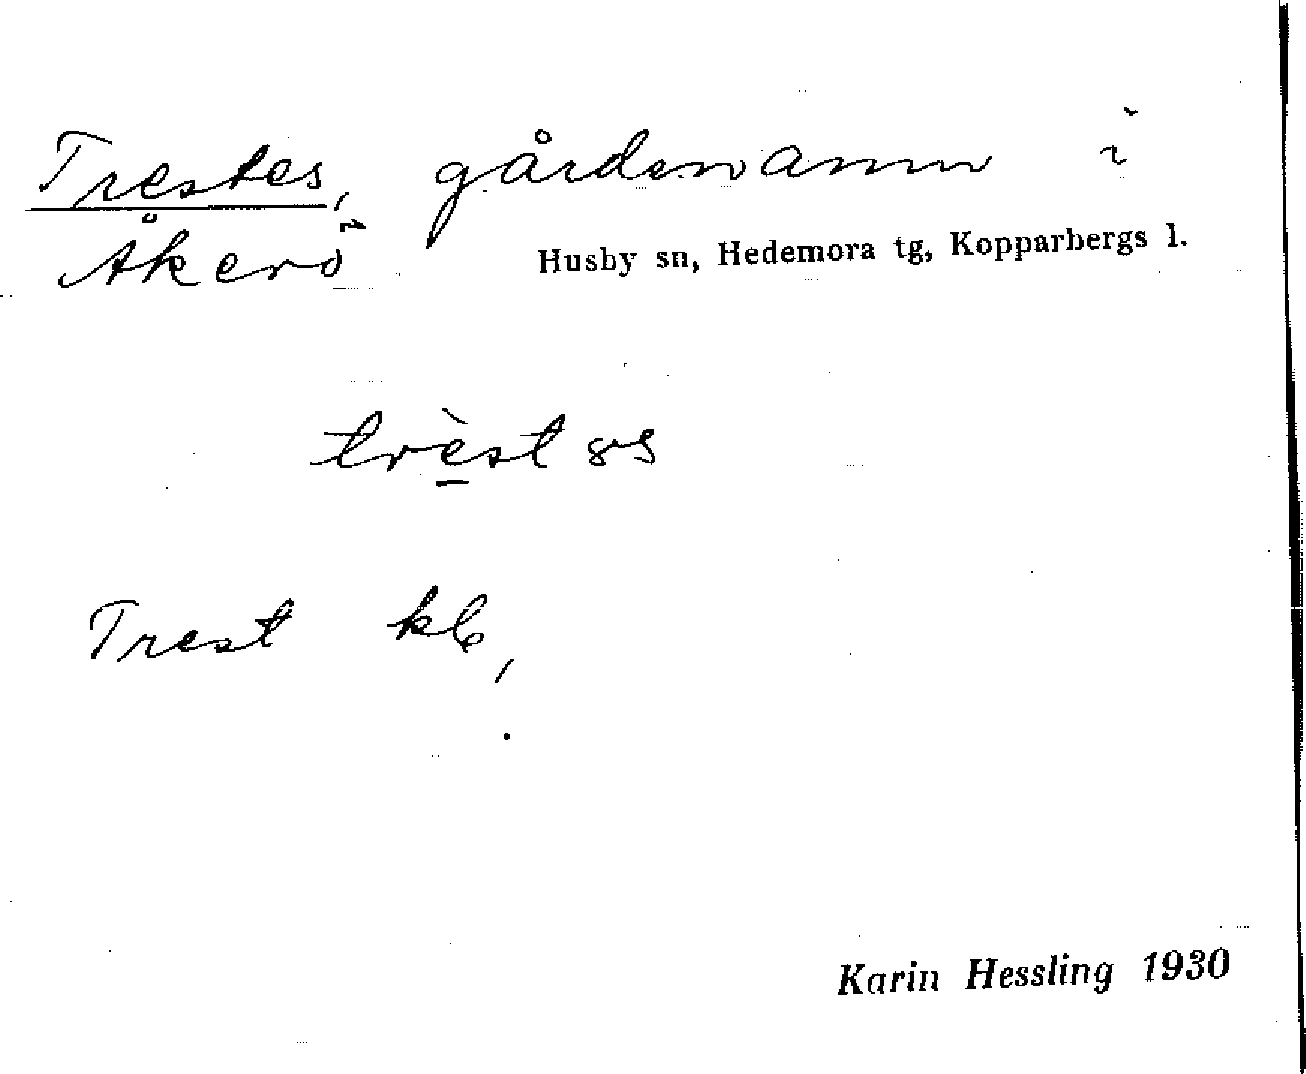 Trestes, gårdsnamn i
Åkerö Husby sn, Hedemora tg, Kopparbergs l.
trèst
Trest
Karin Hessling 1930